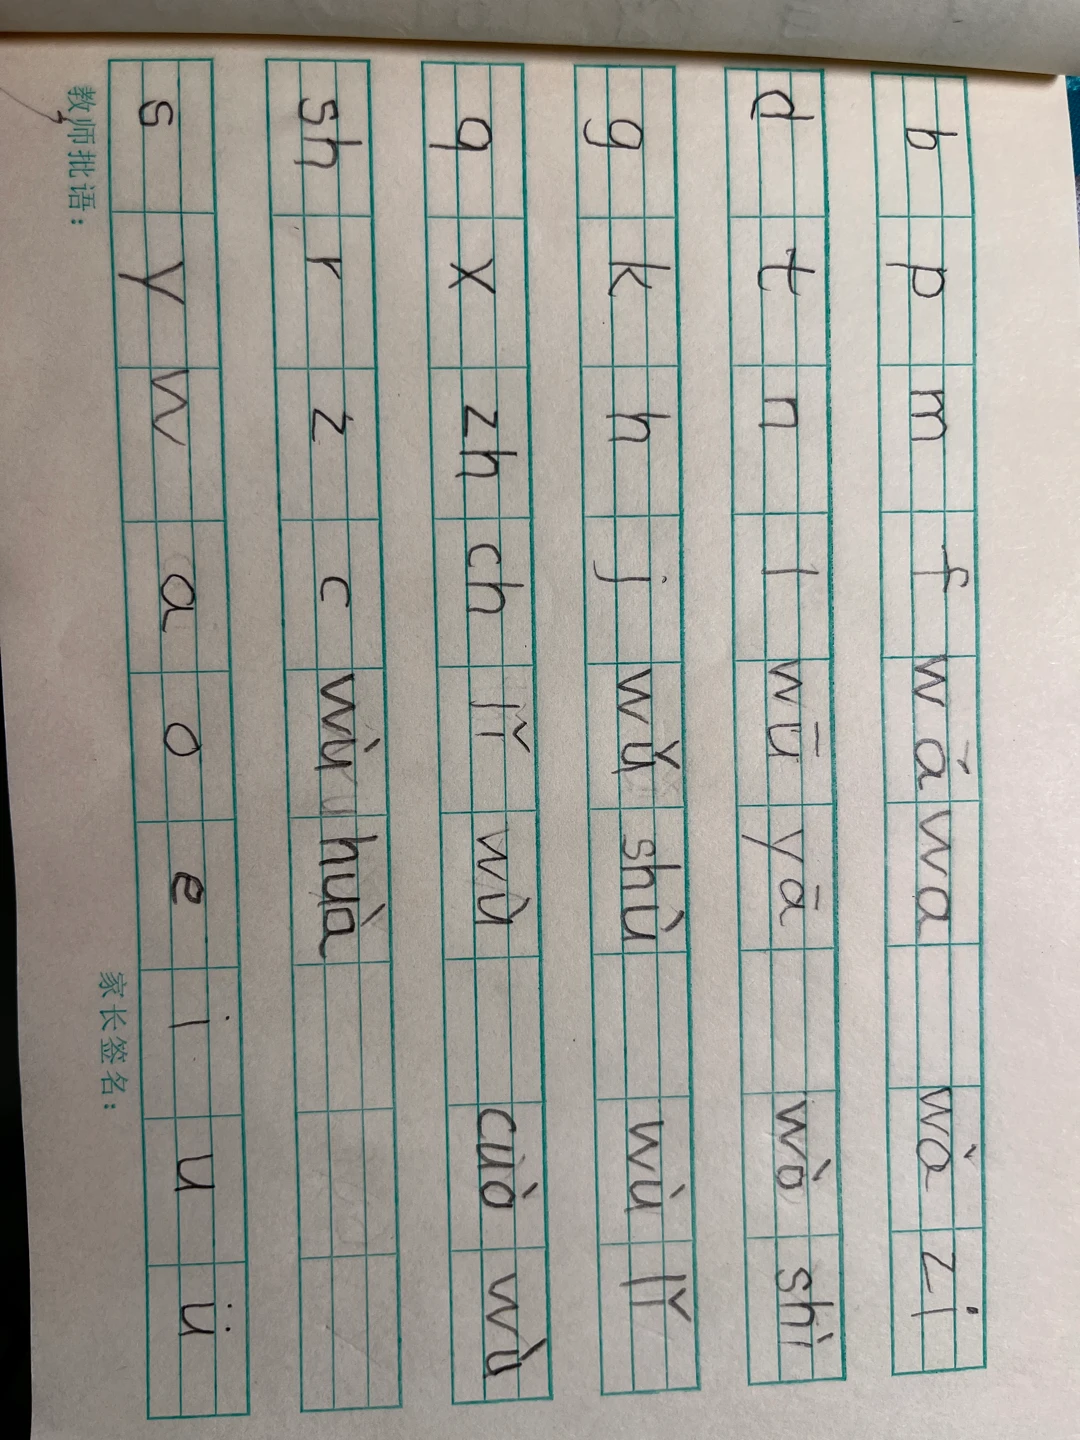 b p m f wá wa wǎ zi
d t n l wū yā wò shì
g k h j wǔ shù wù lǐ
q x zh ch lǐ wù cuò wù
sh r z c wù huà
s y w a o e i u ü
教师批语： 家长签名：